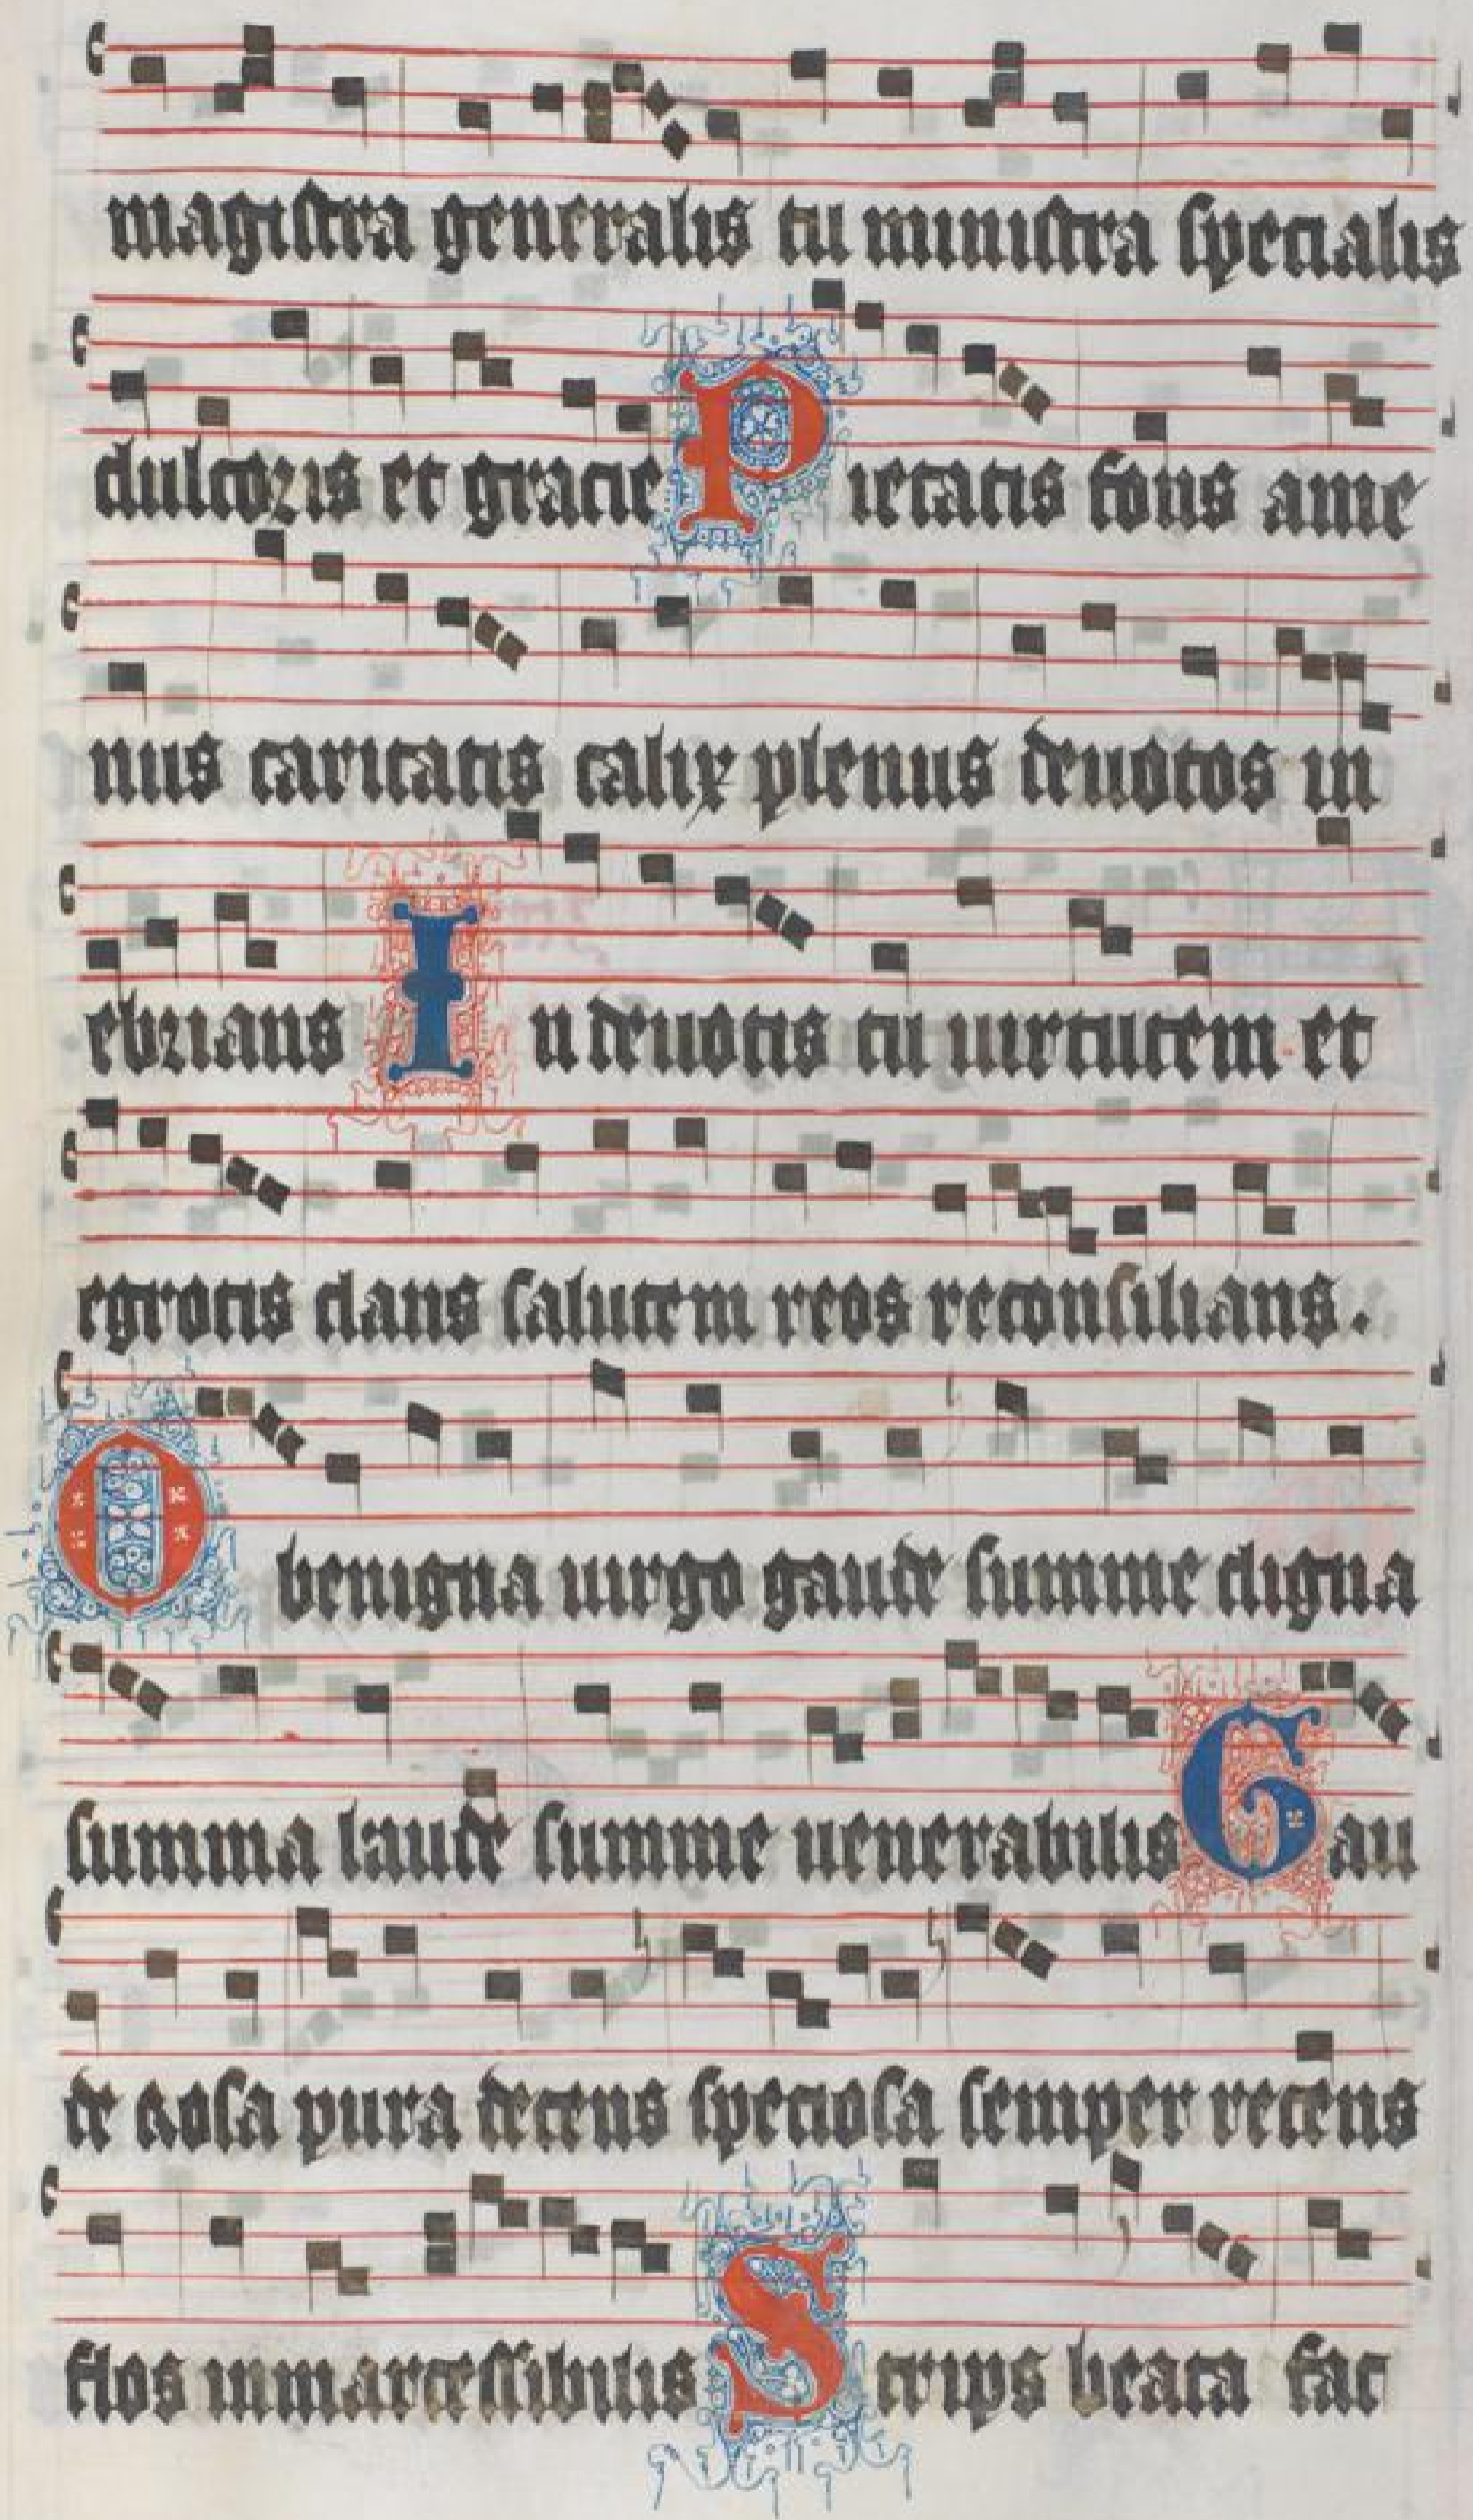 magistra generalis tu ministra specialis
dulcoris et gracie Pietatis fons ame
nus caritatis calix plenus deuotos in
ebrians In deuotis tu uirtutem et
egrotis dans salutem reos reconsilians.
O benigna uirgo gaude summe digna
summa laude summe uenerabilis Gau
de rosa pura decens speciosa semper recens
flos inmarcessibilis Stirps beata fac